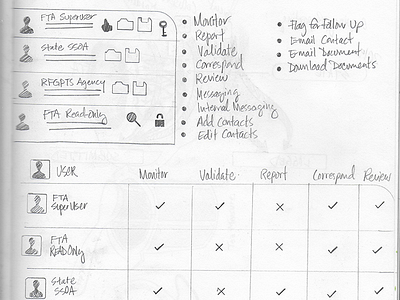 FTA Superuser
State SSOA
RFGPTS Agency
FTA Read-Only
Monitor
Report
Validate
Correspond
Review
Messaging
Internal Messaging
Add Contacts
Edit Contacts
Flag for Follow Up
Email Contact
Email Document
Download Documents
USER Monitor Validate Report Correspond Review
FTA
SuperUser
FTA
READ Only
State
SSOA